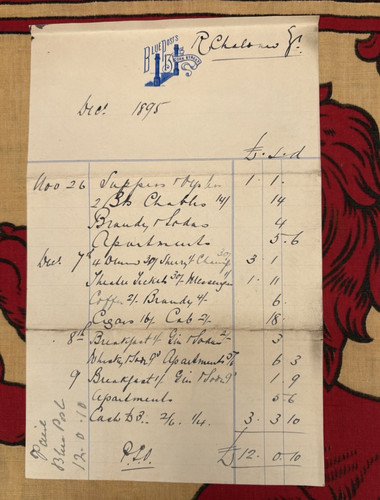 BLUE POSTS
13
CORK STREET
R Chaloner Esq.
Decr 1895
£. s. d
Nov 26 Suppers & Oysters 1. 1.
2 Bts Chablis 14/ 14
Brandy & Sodas 4
Apartments 5. 6
Decr 7th 4 Dinners 30/ Sherry 4/ Champ 3. 1
Theatre Tickets 30/ Messenger 1. 11
Coffee 2/. Brandy 4/. 6.
Cigars 16/. Cab 2/. 18.
8th Breakfast 4/. Gin & Sodas 3
Whisky & Soda 9d Apartments 5/6 6 3
9 Breakfast 1/. Gin & Soda 9d 1. 9
Apartments 5. 6
Cash £3. 2/6. 1/4. 3. 3 10
P.T.O.
£12. 0. 10
Paid
Blue Post
12. 0. 10